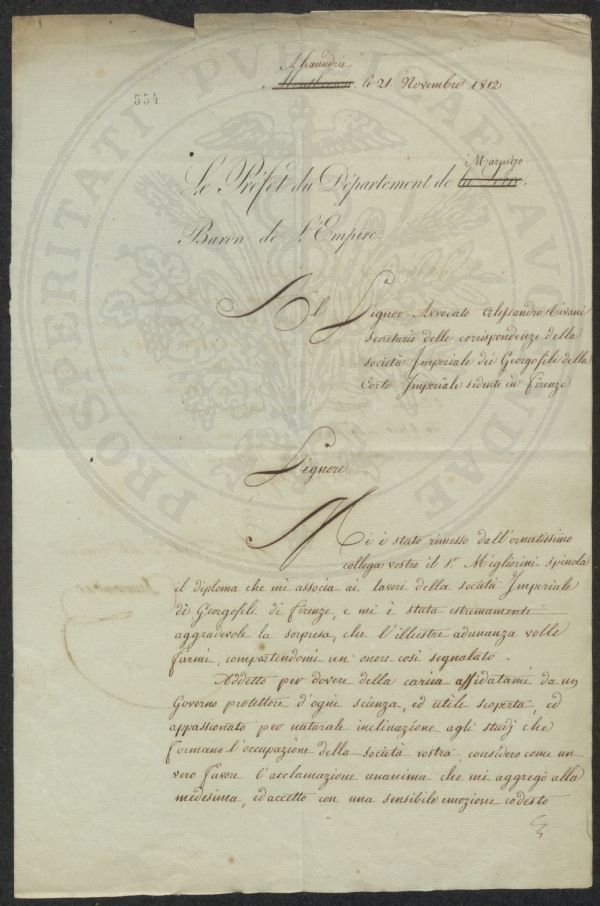 Alexandrie
Montenotte, le 21. Novembre 1812
554
Marengo
Le Préfet du Département de la Sère,
Baron de l'Empire.
Al Signor Avvocato Alessandro Rivani
Secretario delle corrispondenze della
società Imperiale dei Georgofili della
Corte Imperiale sedente in Firenze
Signore
Mi è stato rimesso dall'ornatissimo
collega vostro il Sr. Migliorini spinola
il diploma che mi associa ai lavori della società Imperiale
di Georgofili di Firenze, e mi è stata estremamente
aggradevole la sorpresa, che l'illustre adunanza volle
farmi, compartendomi un' onore così segnalato.
Addetto per dovere della carica affidatami da un
Governo protettore d'ogni scienza, ed utile scoperta, ed
appassionato per naturale inclinazione agli studj che
formano l'occupazione della società vostra, considero come un
vero favore l'acclamazione unanima che mi aggregò alla
medesima, ed accetto con una sensibile emozione codesto
PROSPERITATI PVBLICAE AVGENDAE